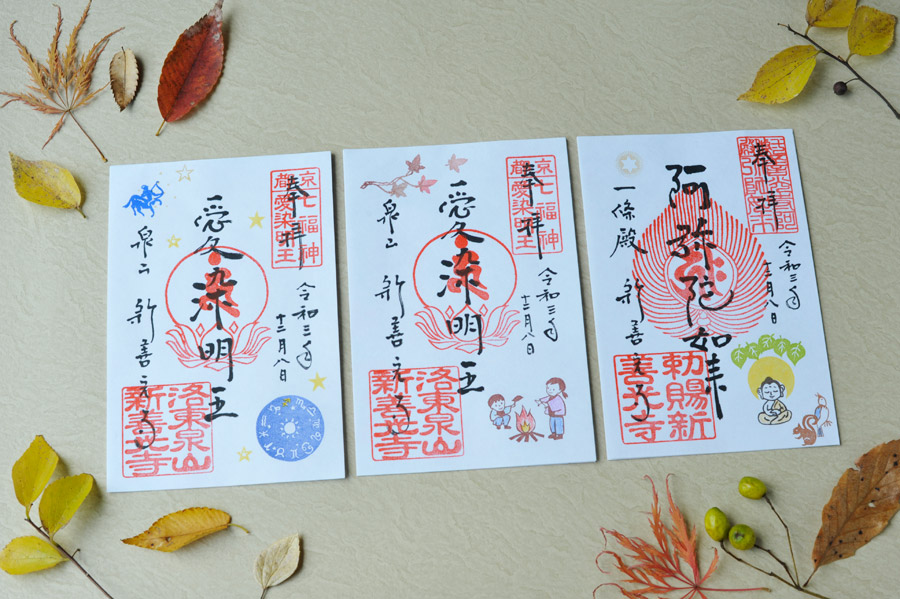 奉拝
京七福神
都愛染明王
令和三年
十二月八日
愛染明王
泉山 新善光寺
洛東泉山
新善光寺
奉拝
京七福神
都愛染明王
令和三年
十二月八日
愛染明王
泉山 新善光寺
洛東泉山
新善光寺
奉拝
令和三年
十二月八日
阿弥陀如来
一條殿 新善光寺
勅賜新
善光寺